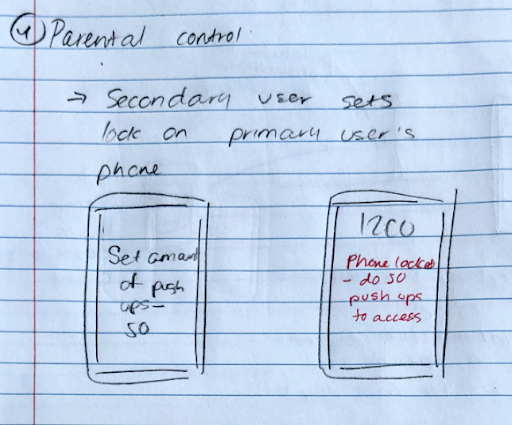 4 Parental control.
→ Secondary user sets
lock on primary user's
phone
Set amount
of push
ups-
50
1200
Phone locked
- do 50
push ups
to access